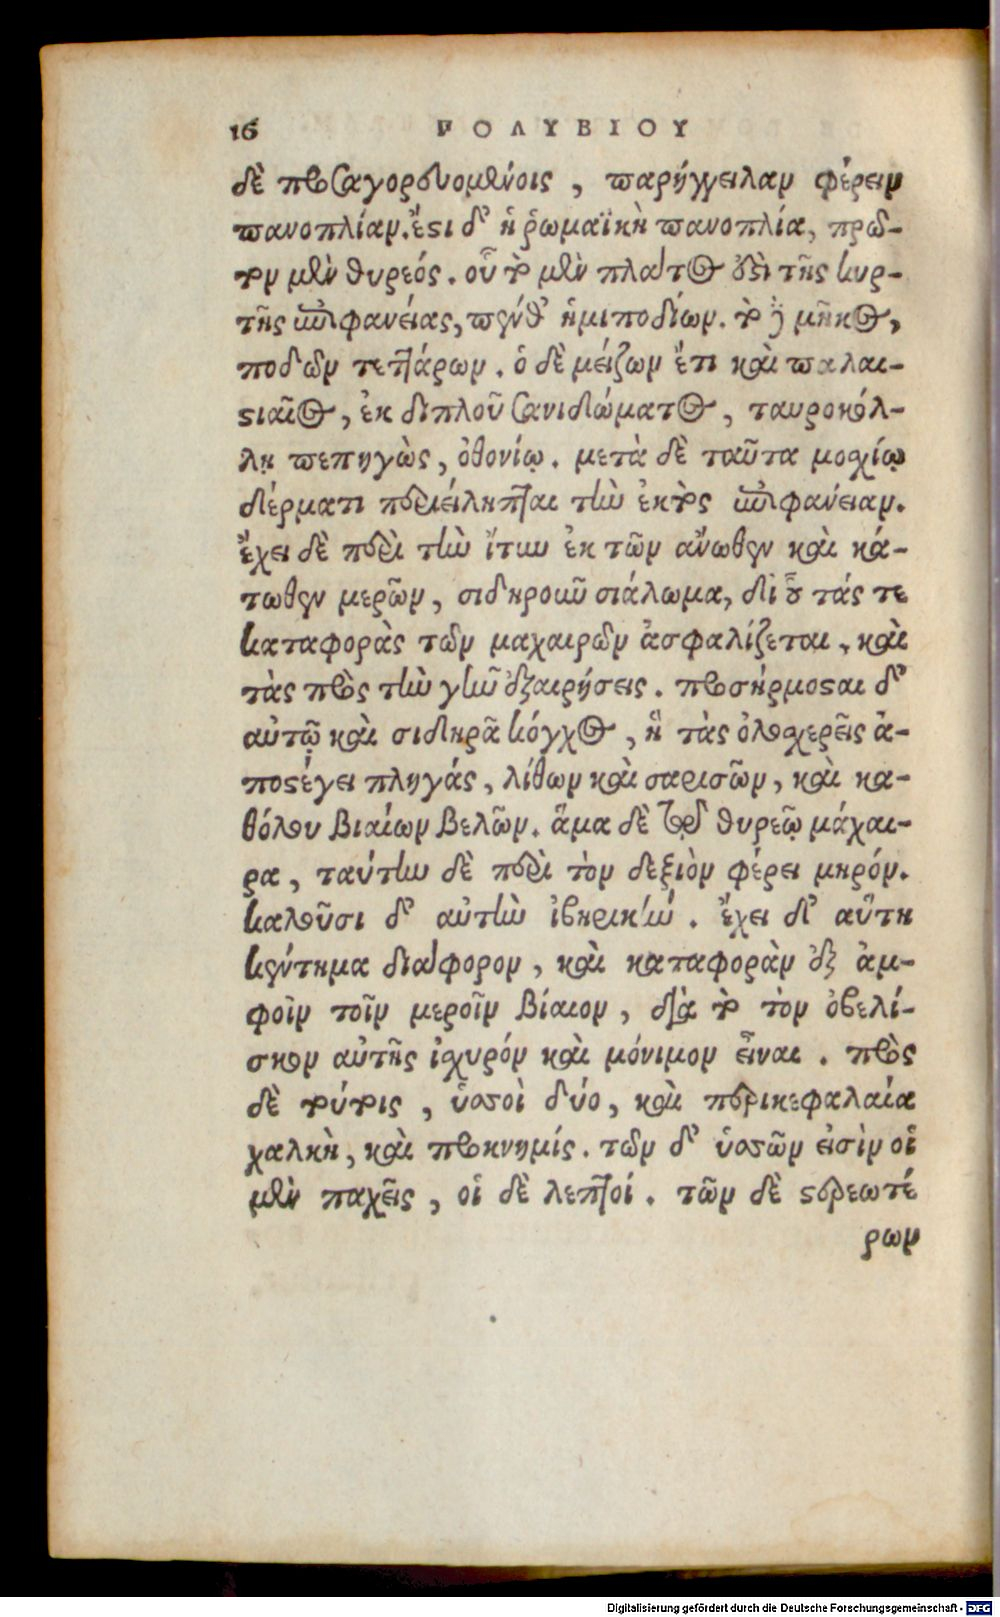 16 ΠΟΛΥΒΙΟΥ
δὲ προσαγορευομένοις, παρήγγειλαν φέρειν
πανοπλίαν. ἔστι δ᾽ ἡ ῥωμαϊκὴ πανοπλία, πρῶ-
τον μὲν θυρεός. οὗ τὸ μὲν πλάτος ἐστὶ τῆς κυρ-
τῆς ἐπιφανείας, πένθ᾽ ἡμιποδίων. τὸ δὲ μῆκος,
ποδῶν τεττάρων. ὁ δὲ μείζων ἔτι καὶ παλαι-
στιαῖος, ἐκ διπλοῦ σανιδώματος, ταυροκόλ-
λῃ πεπηγὼς, ὀθονίῳ. μετὰ δὲ ταῦτα μοσχίῳ
δέρματι περιείληπται τὴν ἐκτὸς ἐπιφάνειαν.
ἔχει δὲ περὶ τὴν ἴτυν ἐκ τῶν ἄνωθεν καὶ κά-
τωθεν μερῶν, σιδηροῦν σιάλωμα, δι᾽ οὗ τάς τε
καταφορὰς τῶν μαχαιρῶν ἀσφαλίζεται, καὶ
τὰς πρὸς τὴν γῆν ἐξαιρήσεις. προσήρμοσται δ᾽
αὐτῷ καὶ σιδηρᾶ κόγχος, ἣ τὰς ὁλοσχερεῖς ἀ-
ποστέγει πληγάς, λίθων καὶ σαρισῶν, καὶ κα-
θόλου βιαίων βελῶν. ἅμα δὲ τῷ θυρεῷ μάχαι-
ρα, ταύτην δὲ περὶ τὸν δεξιὸν φέρει μηρόν.
καλοῦσι δ᾽ αὐτὴν ἰβηρικήν. ἔχει δ᾽ αὕτη
κέντημα διάφορον, καὶ καταφορὰν ἐξ ἀμ-
φοῖν τοῖν μεροῖν βίαιον, διὰ τὸ τὸν ὀβελί-
σκον αὐτῆς ἰσχυρόν καὶ μόνιμον εἶναι. πρὸς
δὲ τούτοις, ὑσσοὶ δύο, καὶ περικεφαλαία
χαλκὴ, καὶ προκνημίς. τῶν δ᾽ ὑσσῶν εἰσὶν οἱ
μὲν παχεῖς, οἱ δὲ λεπτοί. τῶν δὲ στερεωτέ
ρων
Digitalisierung gefördert durch die Deutsche Forschungsgemeinschaft - DFG